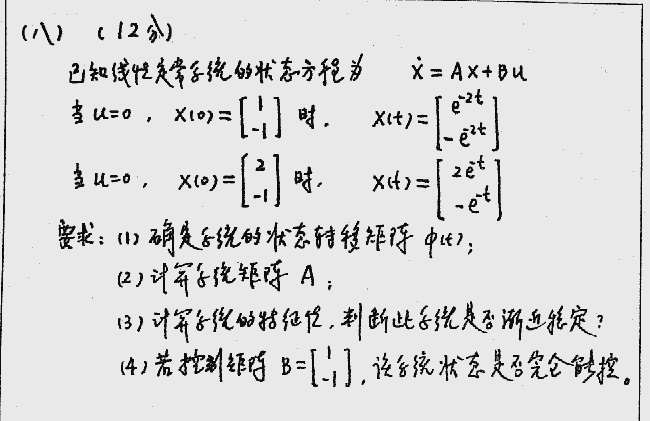 (八) (12分)
已知线性定常系统的状态方程为 ẋ = Ax + Bu
当 u=0, x(0)=[1 -1] 时, x(t)=[e^{-2t} -e^{-2t}]
当 u=0, x(0)=[2 -1] 时, x(t)=[2e^{-t} -e^{-t}]
要求: (1) 确定系统的状态转移矩阵 φ(t);
(2) 计算系统矩阵 A;
(3) 计算系统的特征值, 判断此系统是否渐近稳定?
(4) 若控制矩阵 B=[1 -1], 该系统状态是否完全能控。